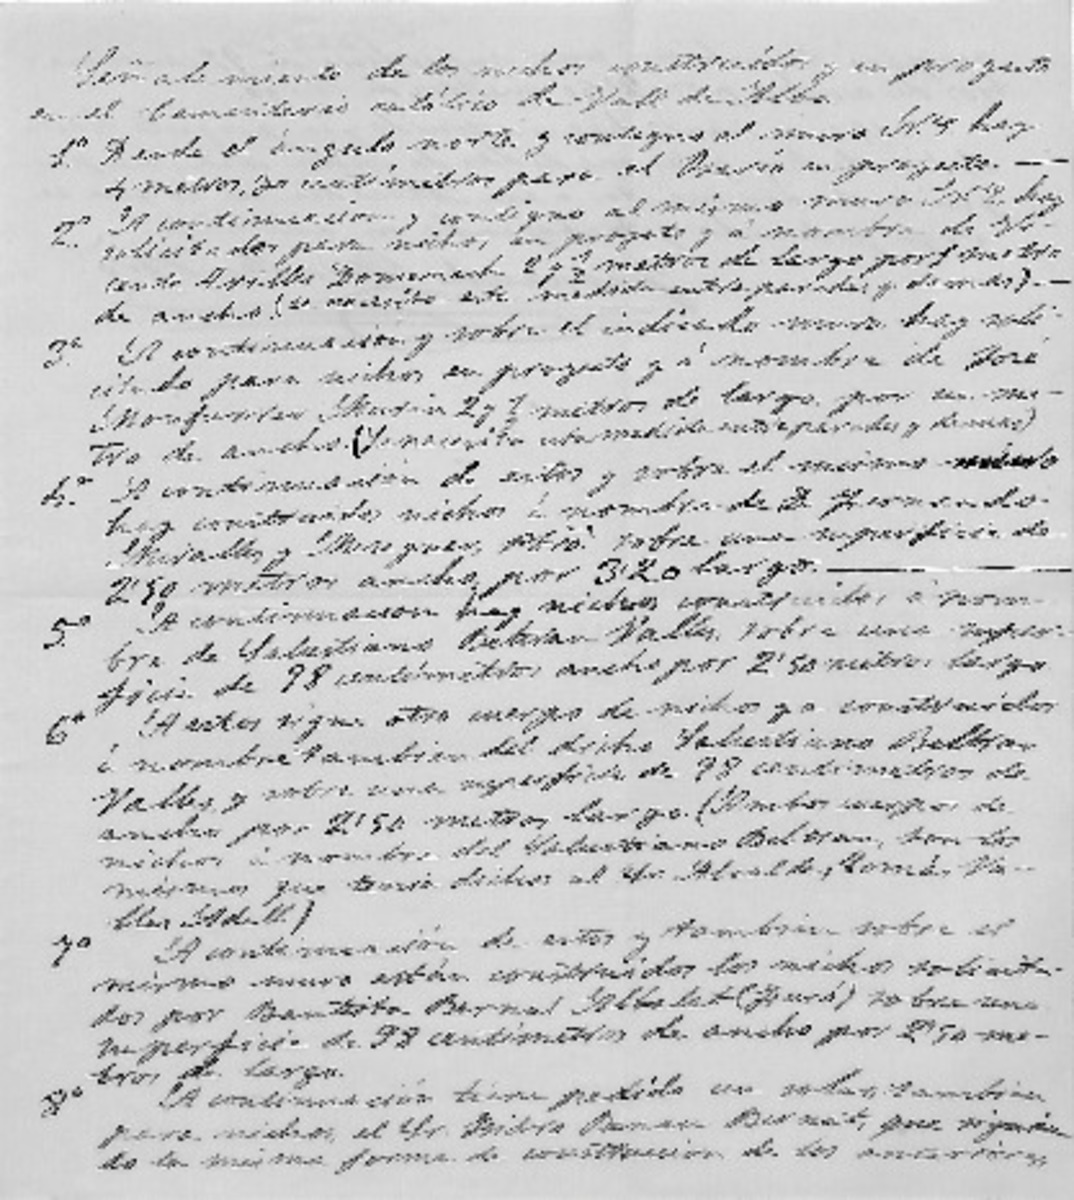 Señalamiento de los nichos construidos y en proyecto
en el Cementerio católico de Vall de Alba
1º Desde el ángulo norte y contiguo al muro hay
4 metros, centímetros para el Osario en proyecto.
2º A continuación y contiguo al mismo muro hay
solicitados para nichos en proyecto y á nombre de Vi-
cente Domenech 2 y ½ metros de largo por 1 metro
de ancho (se necesita esta medida entre paredes y demas).
3º A continuacion y sobre el indicado muro hay soli-
citado para nichos en proyecto y á nombre de José
2 y ½ metros de largo por un me-
tro de ancho. (Se necesita esta medida entre paredes y demas)
4º A continuación de estos y sobre el mismo
hay construidos nichos á nombre de D. Fernando
Miralles y sobre una superficie de
2'50 metros ancho, por 3'20 largo.
5º A continuacion hay nichos construidos á nom-
bre de Salustiano Beltran Valles, sobre una super-
ficie de 98 centímetros ancho por 2'50 metros largo
6º A estos sigue otro cuerpo de nichos ya construidos
á nombre tambien del dicho Salustiano Beltran
Valles, y sobre una superficie de 98 centímetros de
ancho por 2'50 metros largo. (Ambos cuerpos de
nichos á nombre del Salustiano Beltran, son los
mismos que tenia dichos al Sr. Alcalde, Tomás Va-
lles Adell)
7º A continuación de estos y tambien sobre el
mismo muro están construidos los nichos solicita-
dos por Bautista Bernat Albalat sobre una
superficie de 98 centímetros de ancho por 2'50 me-
tros de largo.
8º A continuación tiene pedido un solar, tambien
para nichos, el Sr. Isidro Bernat, que siguien-
do la misma forma de construccion de los anteriores,